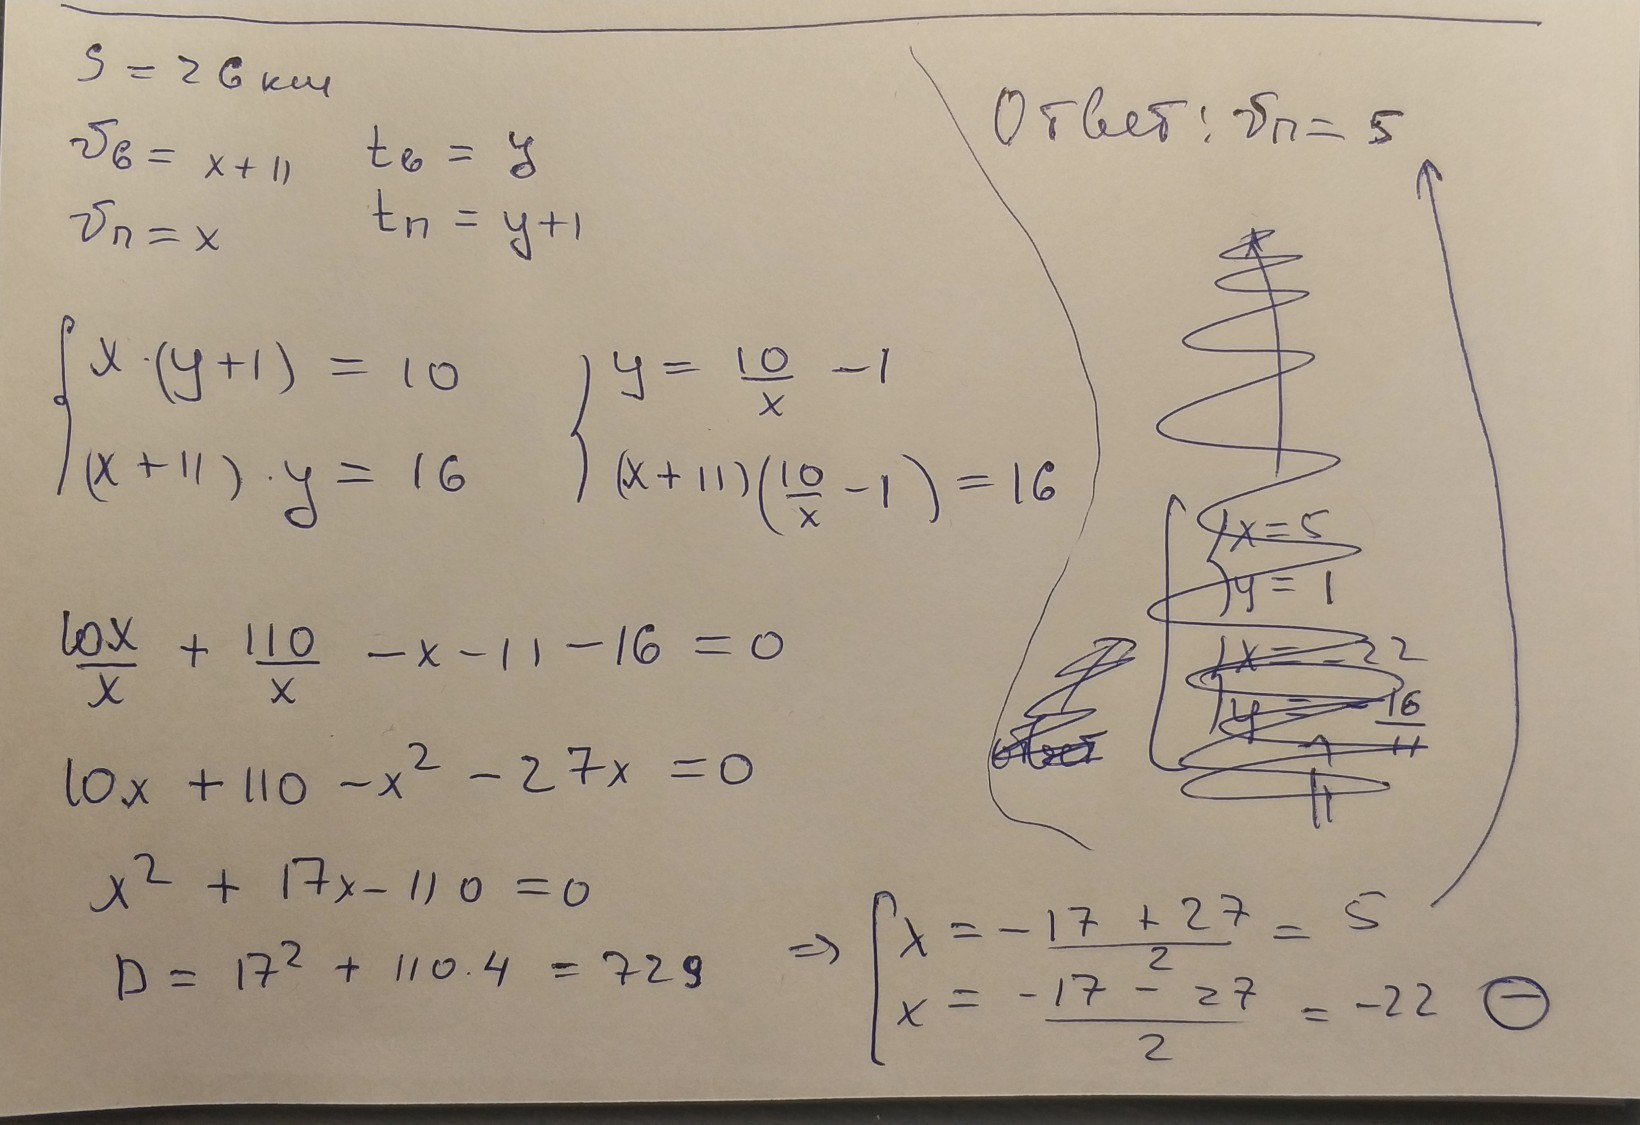 S = 26 км
v_в = x + 11    t_в = y
v_п = x    t_п = y+1
{ x · (y+1) = 10    { y = 10/x - 1
{ (x + 11) · y = 16    { (x + 11)(10/x - 1) = 16
10x/x + 110/x - x - 11 - 16 = 0
10x + 110 - x² - 27x = 0
x² + 17x - 110 = 0
D = 17² + 110·4 = 729
=> [ x = (-17 + 27)/2 = 5
[ x = (-17 - 27)/2 = -22 ⊖
Ответ: v_п = 5
x = 5
y = 1
x = -22
y = -16/11
ответ